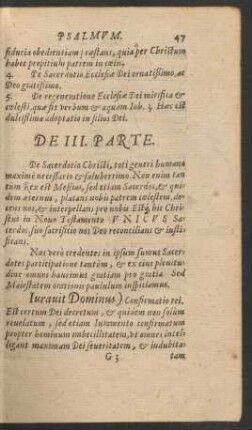 PSALMVM. 47
fiducia obedientiam præstans, quia per Christum
habet propitium patrem in cœlis.
4. De Sacerdotio Ecclesiæ Dei ornatissimo, ac
Deo gratissimo.
5. De regeneratione Ecclesiæ Dei mirifica &
cœlesti, quæ fit verbum & aquam Ioh. 3 Hæc est
dulcissima adoptatio in filios Dei.
DE III. PARTE.
De Sacerdotio Christi, toti generi humano
maximè necessario & saluberrimo. Non enim tan
tum Rex est Messias, sed etiam Sacerdos, & qui
dem æternus, placans nobis patrem cœlestem, do
cens nos, & interpellans pro nobis Est
stus in Nouo Testamento VNICVS Sa
cerdos, suo sacrificio nos Deo reconcilians & iusti-
ficans.
Nos verò credentes in ipsum sumus Sacer
dotes participatione tantùm, & ex eius plenitu
dine omnes haurimus gratiam pro gratia. Sed
Maiestatem orationis paululum inspiciamus.
Iurauit Dominus) Confirmatio rei.
Est certum Dei decretum, & quidem non solùm
reuelatum, sed etiam Iuramento confirmatum
propter hominum imbecillitatem, vt omnes intel-
ligant maximam Dei seueritatem, & indubita-
G 3 tam